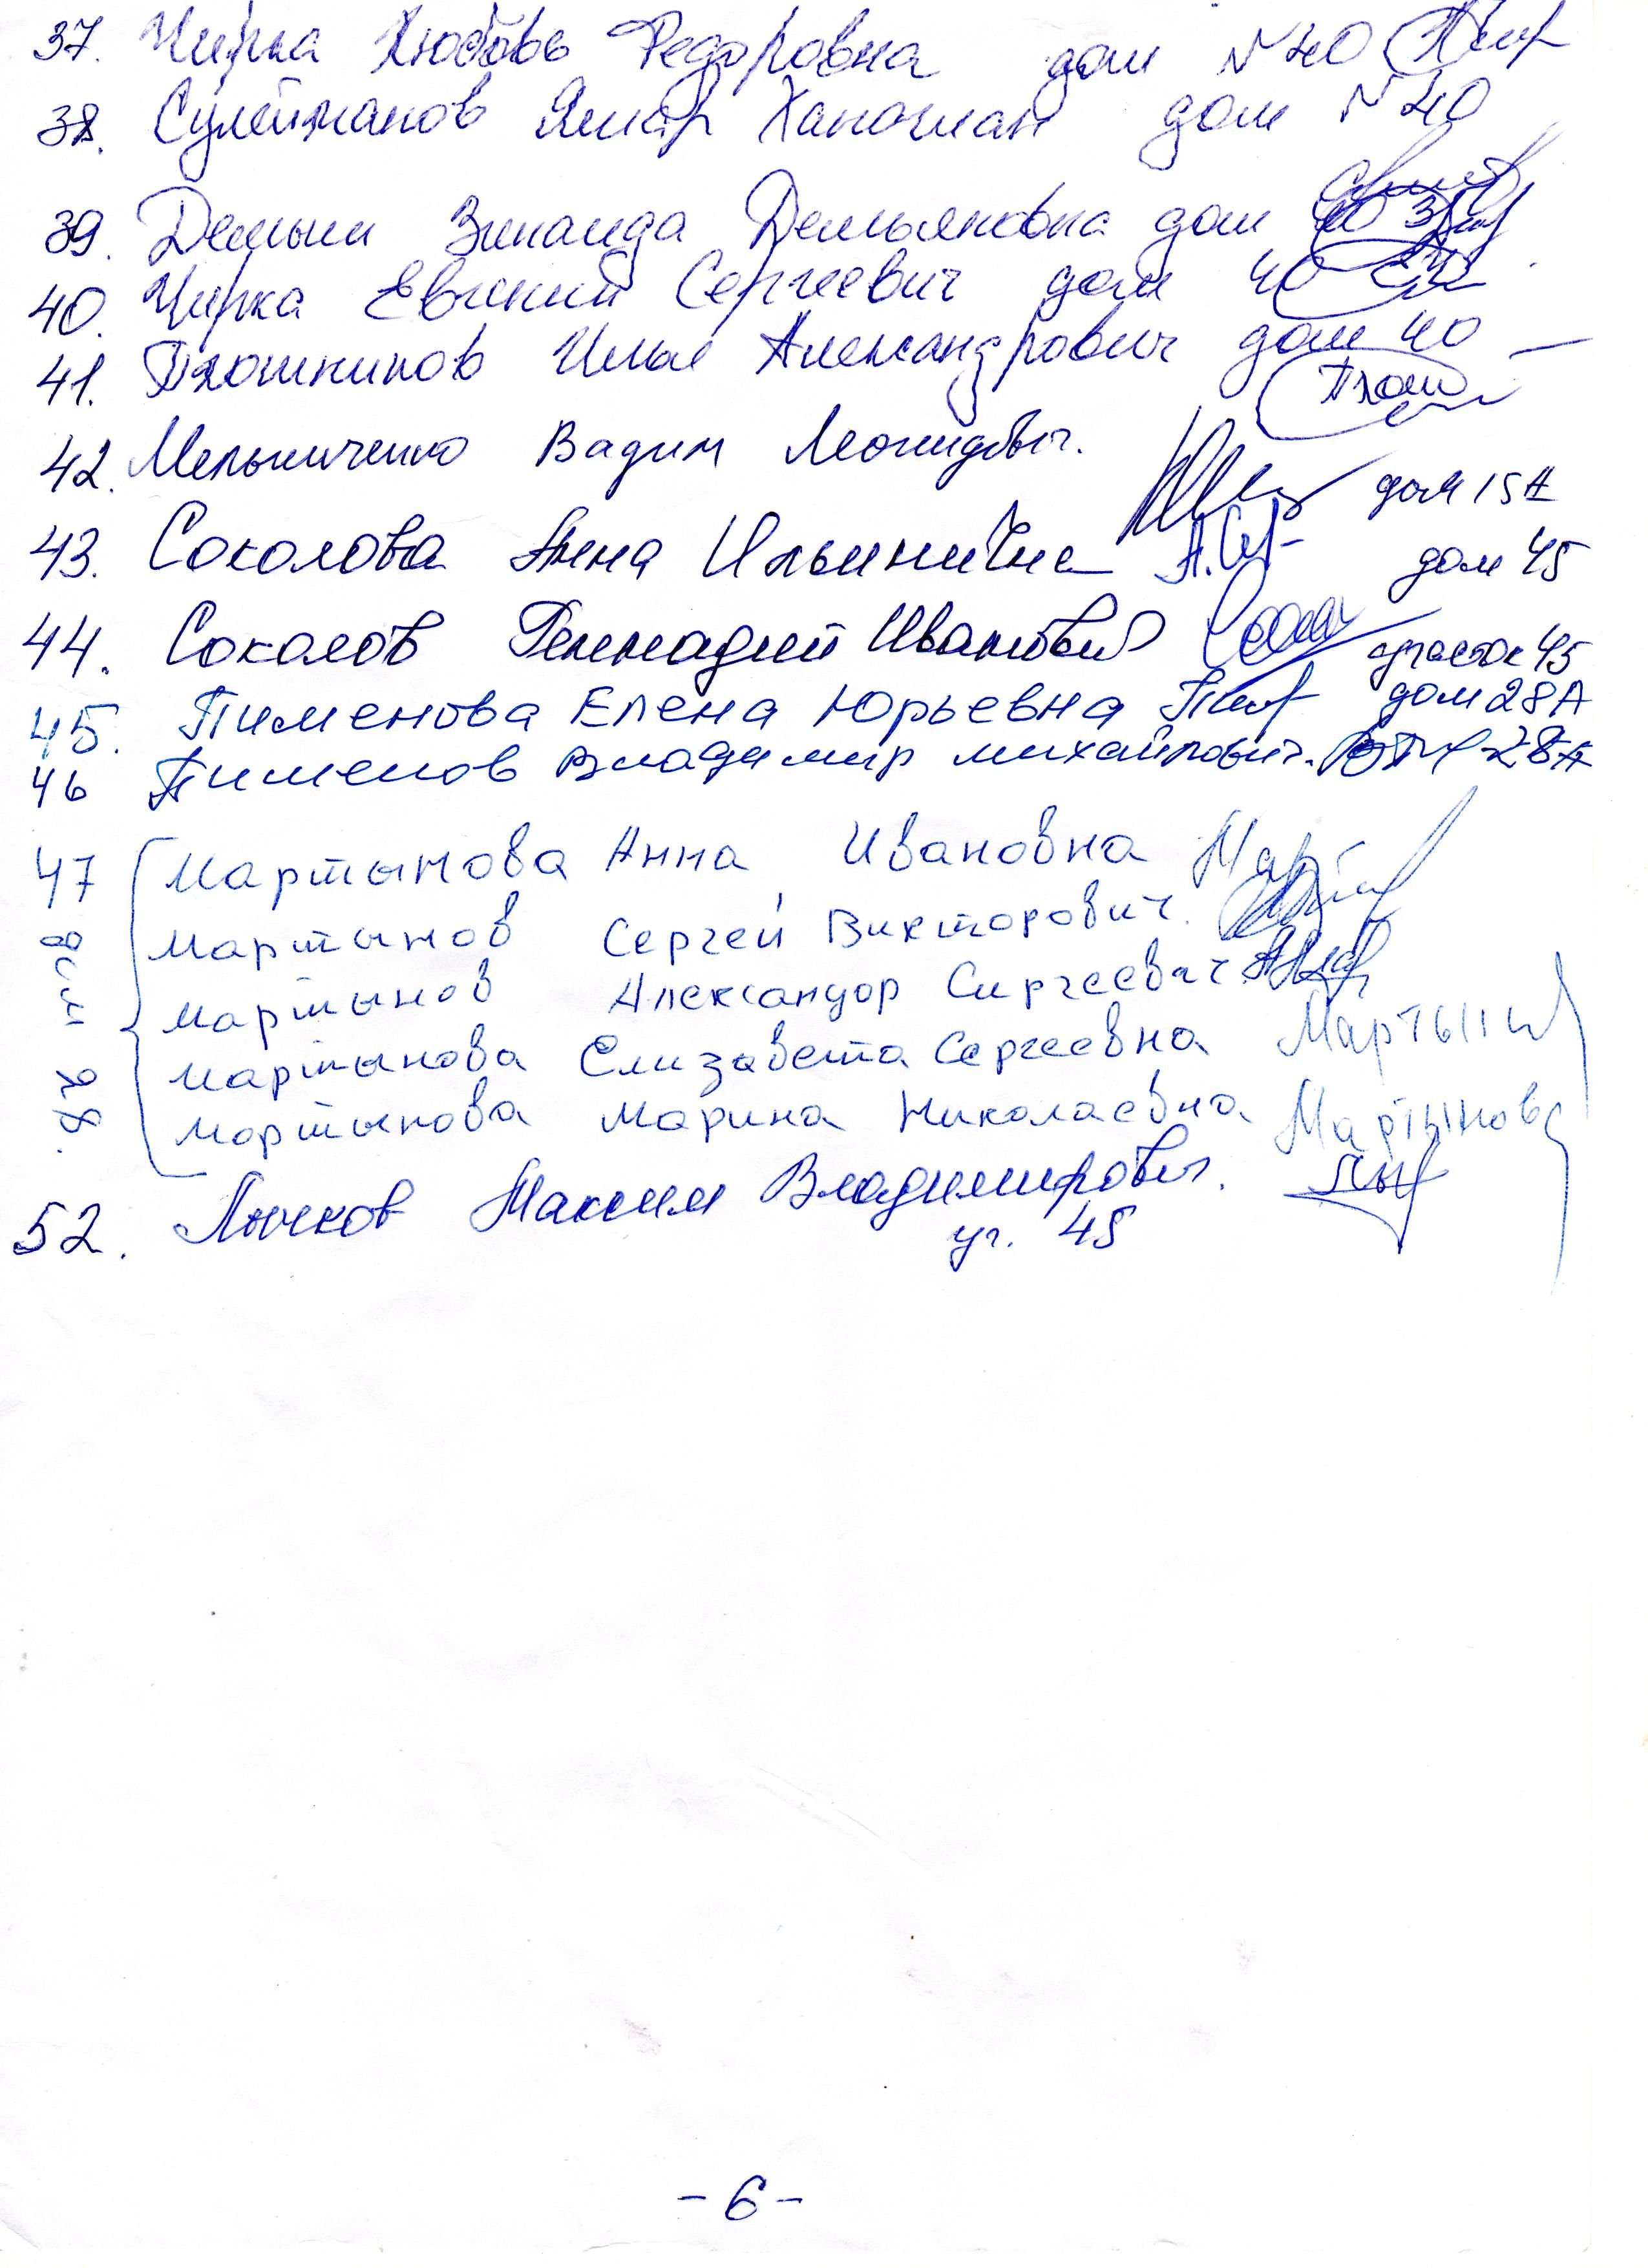 37. Чирка Любовь Федоровна дом №40
38. Сулейманов Яшар Ханоглан дом №40
39. Демьян Зинаида Демьяновна дом 40
40. Чирка Евгений Сергеевич дом 40
41. Плотников Илья Александрович дом 40
42. Мельниченко Вадим Леонидович. дом 15А
43. Соколова Анна Ильинична дом 45
44. Соколов Геннадий Иванович участок 45
45. Пименова Елена Юрьевна дом 28А
46 Пименов Владимир михайлович. 28А
47 Мартынова Анна Ивановна Мар
Мартынов Сергей Викторович.
Мартынов Александр Сергеевич
Мартынова Елизавета Сергеевна
Мартынова Марина Николаевна Мартынова
52. Лычков Максим Владимирович.
уч. 45
-6-